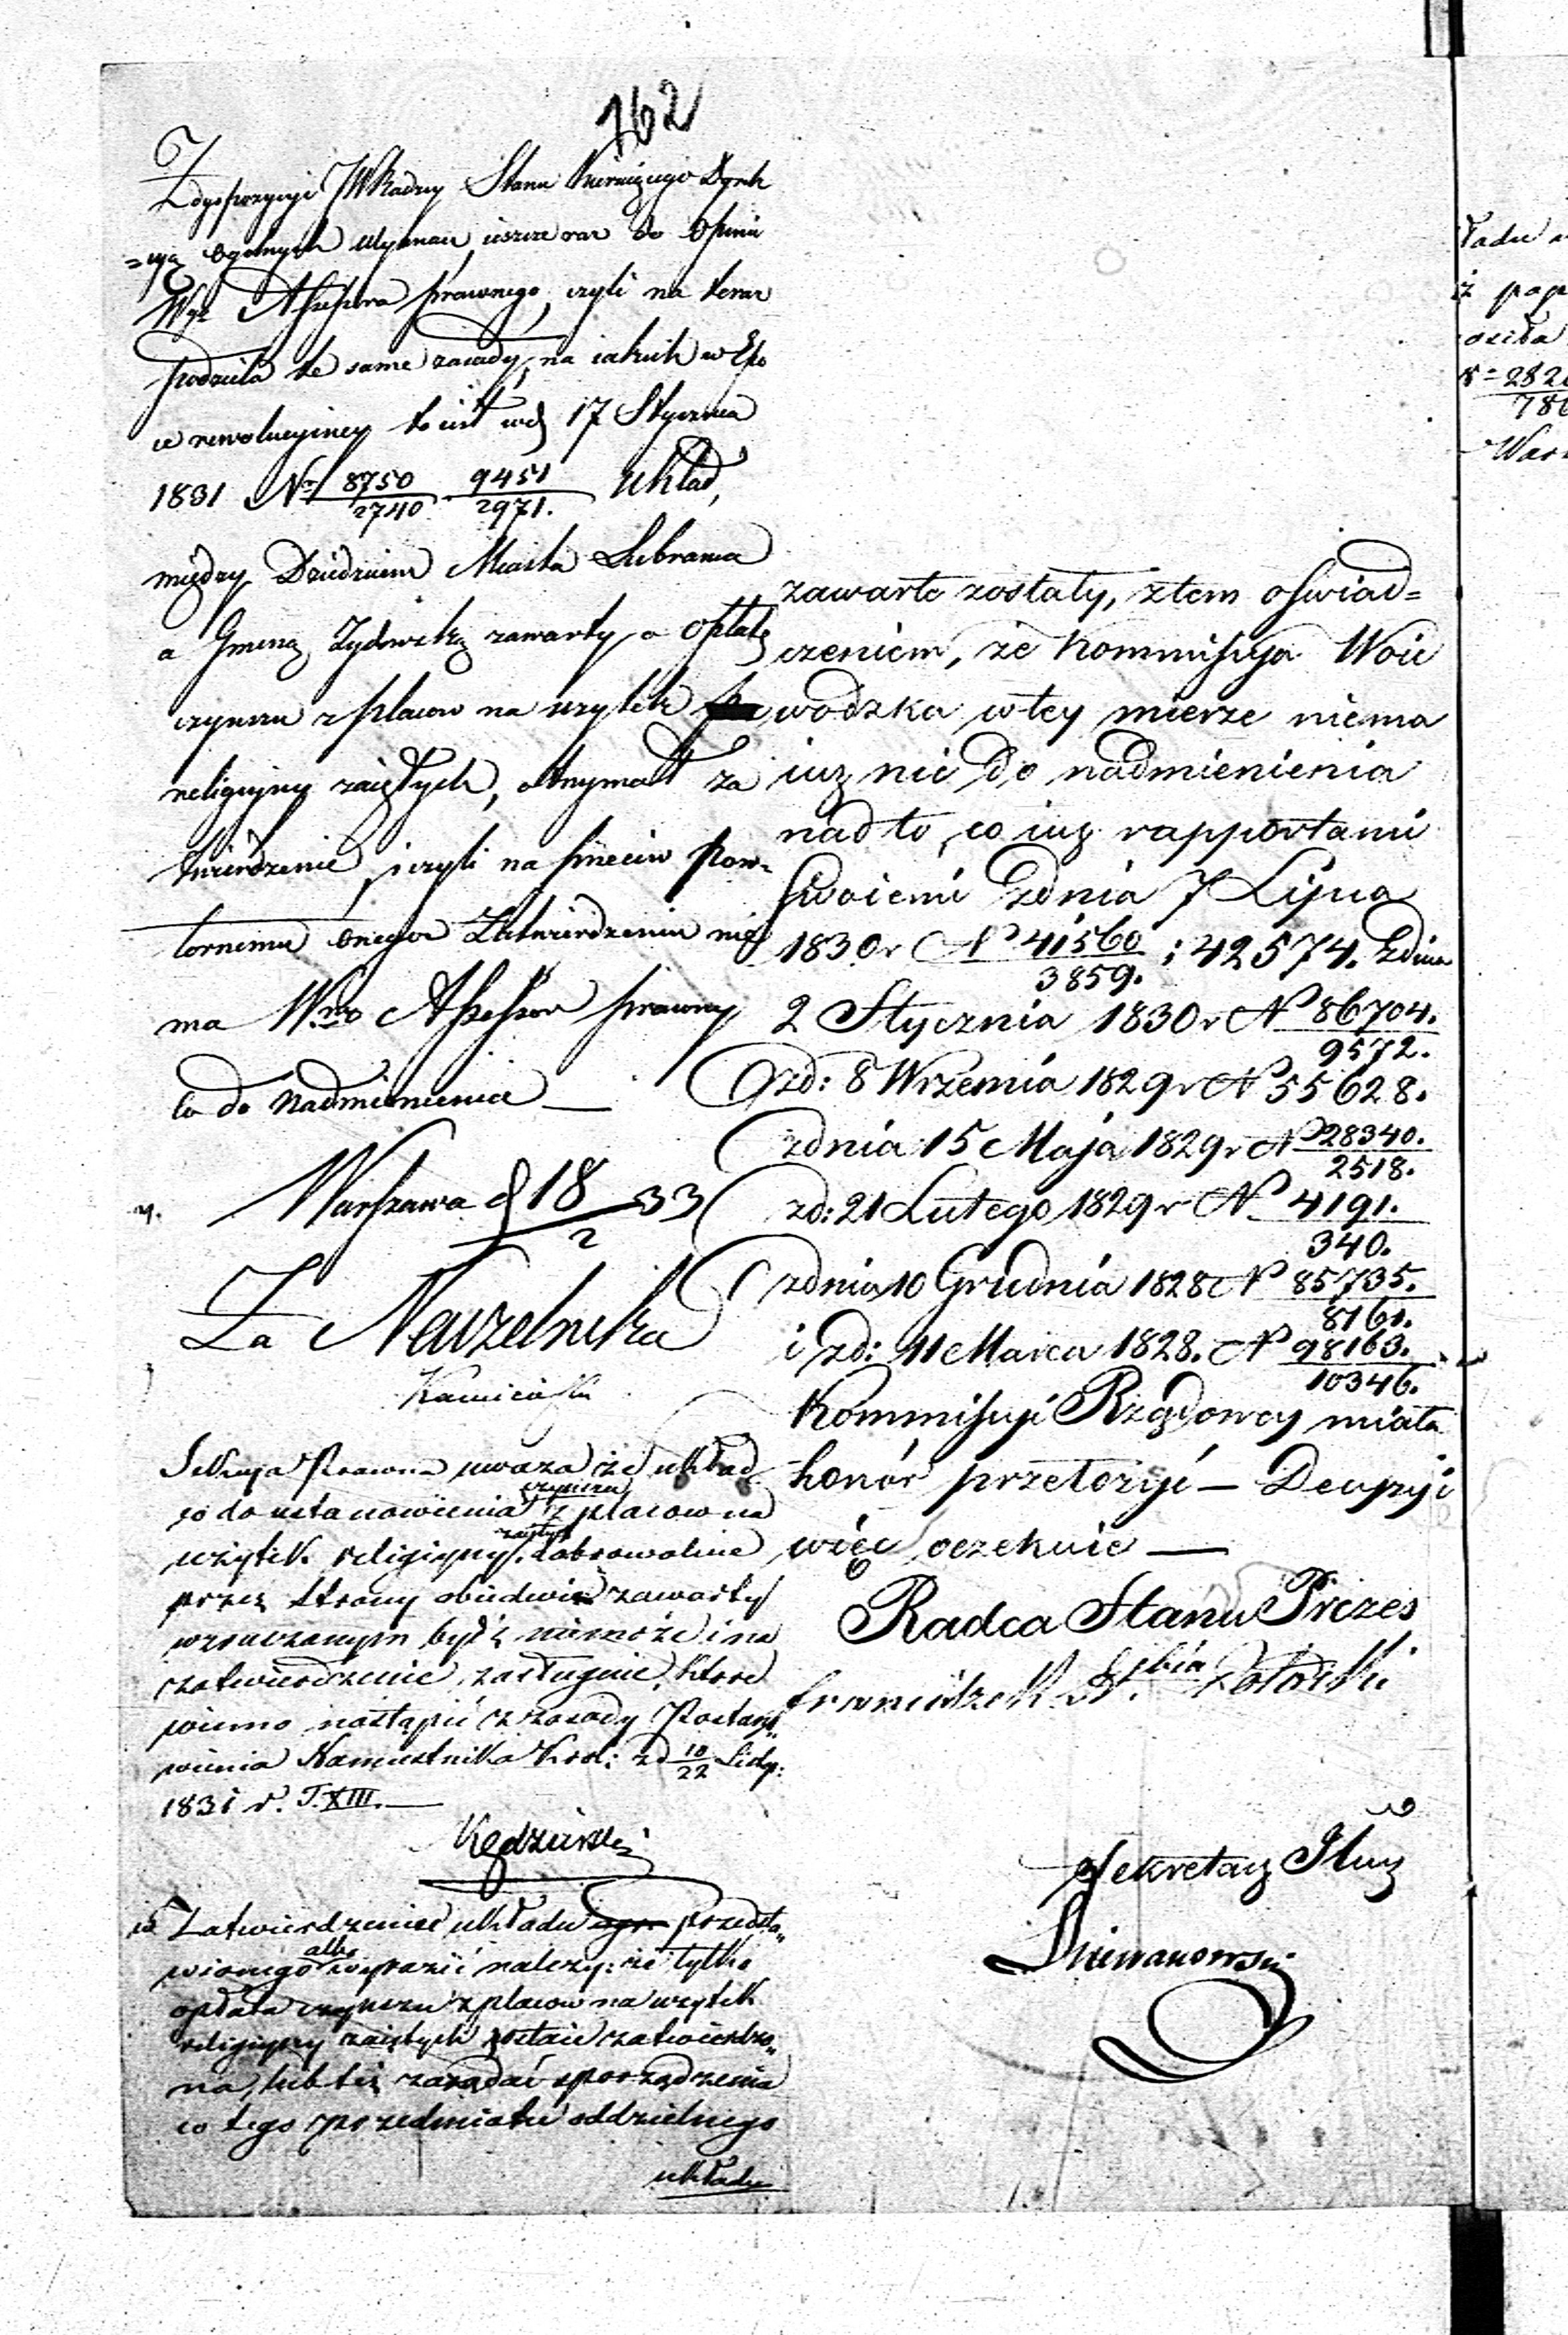 162
Z dyspozycyi JW Radcy Stanu kieruiącego Dyrek
=cyą ogolnych wyznań, ieszcze raz do Opinii
Wgo Assessora prawnego, czyli na teraz
podziela te same zasady, na iakich w Epo
ce rewolucyiney to iest wd 17 Stycznia
1831 No 8750/2740 9451/2971. Układ,
między Dziedzicem Miasta Lubrania
a Gminą Żydowską zawarty o Opłatę
czynszu z placow na użytek
religiyny zaiętych, otrymał za
twierdzenie, i czyli na przeciw pow-
tornemu onegoż Zatwierdzeniu nie
ma Wny Assessor prawny
co do Nadmienienia —
Warszawa d 18/2 33
Za Naczelnika
Kamieński
Sekcya Prawna uważa że układ
co do ustanowienia czynszu z placow na
użytek religiyny zaiętych dobrowolnie
przez strony obiedwie zawarty
wzruszanym bydź niemoże i na
zatwierdzenie zasługuie, ktore
winno nastąpić z zasady Postano-
wienia Namiestnika Krol: zd 10/22 Listp:
1831 r. T. XIII. —
Kędzierski
Zatwierdzenie układu przedsta-
wionego albo wyrazić należy: że tylko
opłata czynszu z placow na użytek
religiyny zaiętych zostaie zatwierdzo-
na, lub też zażądać sporządzenia
co tego przedmiotu oddzielnego
układu
zawarte zostały, z tem oświad=
czeniem, że Kommissyja Woie
wodzka w tey mierze niema
iuz nic do nadmienienia
nad to, co iuz rapportami
swoiemi z dnia 7 Lipca
1830 r No 41560/3859. ; 42574. z dnia
2 Stycznia 1830 r No 86704./9572.
zd: 8 Września 1829 r No 55628.
z dnia 15 Maja 1829 r No 28340./2518.
zd: 21 Lutego 1829 r No 4191./340.
z dnia 10 Grudnia 1828 No 85735./8160.
i zd: 11 Marca 1828. No 98163./10346.
Kommissyi Rządowey miała
honór przełożyć — Decyzyi
więc oczekuie —
Radca Stanu Prezes
Sekretarz Jlny
ładu
iż pap
osiła
282
786
Wars